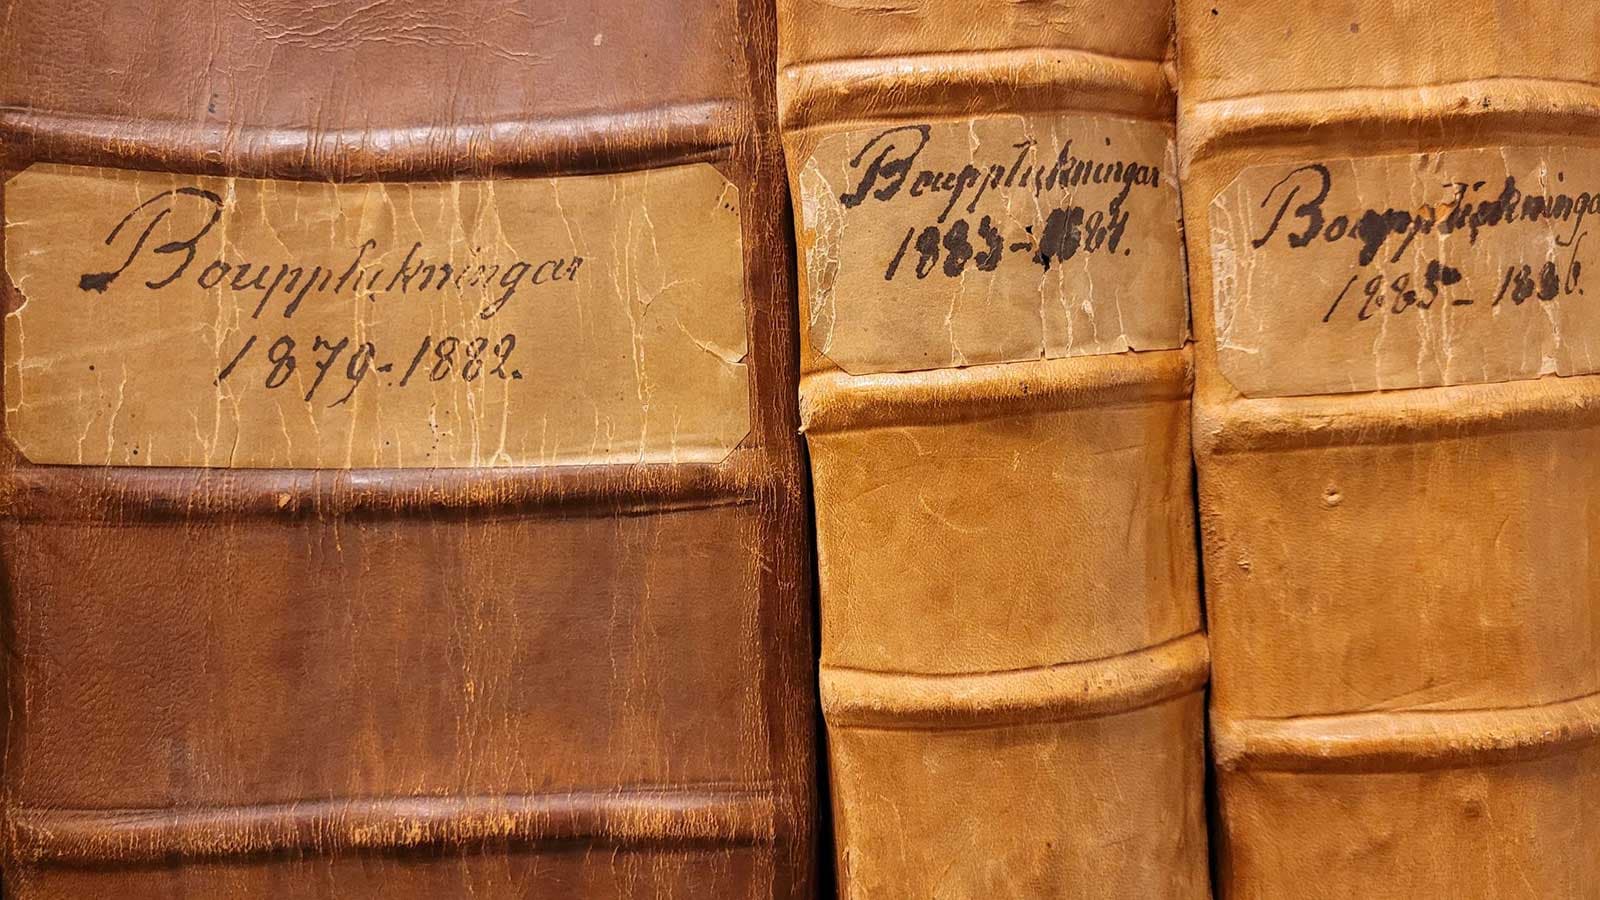 Boupptekningar
1879-1882.
Boupptekningar
1883-1884.
Boupptekninga
1885-1886.